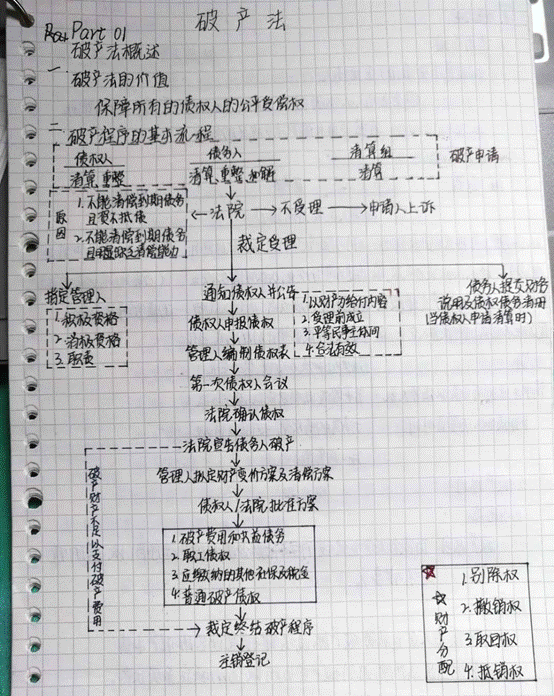 破产法
Part 01
破产法概述
一. 破产法的价值
保障所有的债权人的公平受偿权
二. 破产程序的基本流程
债权人 债务人 清算组 破产申请
清算、重整 清算、重整、和解 清算
原因
1. 不能清偿到期债务
且资不抵债
2. 不能清偿到期债务
且明显缺乏清偿能力
←法院→不受理→申请人上诉
裁定受理
指定管理人
1. 积极资格
2. 消极资格
3. 职责
通知债权人并公告
债权人申报债权
1. 以财产为给付内容
2. 受理前成立
3. 平等民事主体间
4. 合法有效
债务人提交财务
说明及债权债务清册
(当债权人申请清算时)
管理人编制债权表
第一次债权人会议
法院确认债权
法院宣告债务人破产
管理人拟定财产变价方案及清偿方案
债权人/法院批准方案
1. 破产费用和共益债务
2. 职工债权
3. 应缴纳的其他社保及税金
4. 普通破产债权
破产财产不足以支付破产费用
裁定终结破产程序
注销登记
☆☆财产分配
1. 别除权
2. 撤销权
3. 取回权
4. 抵销权